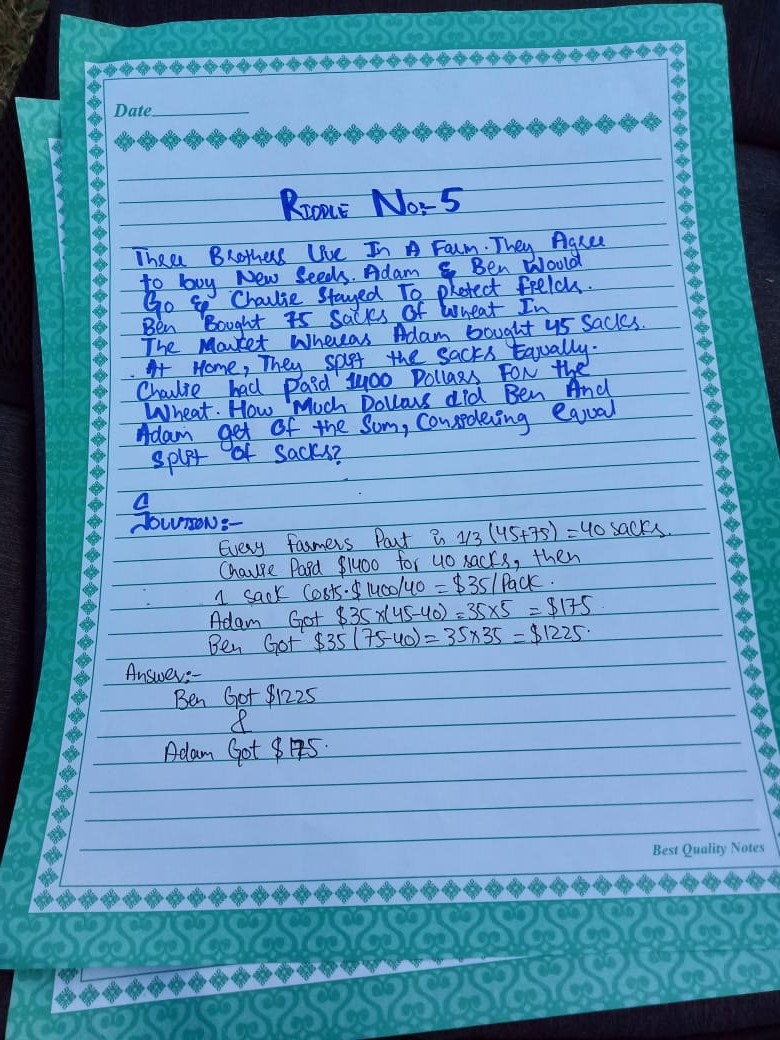 Date
RIDDLE No:- 5
Three Brothers live In A Farm. They Agree
to buy New Seeds. Adam & Ben Would
Go & Charlie Stayed To protect fields.
Ben Bought 75 Sacks Of Wheat In
The Market Whereas Adam bought 45 Sacks.
At Home, They split the Sacks Equally.
Charlie had Paid 1400 Dollars FOR the
Wheat. How Much Dollars did Ben And
Adam get Of the Sum, Considering equal
Split of Sacks?
SOLUTION:-
Every farmers Part is 1/3 (45+75) = 40 sacks.
Charlie Paid $1400 for 40 sacks, then
1 sack Costs. $1400/40 = $35/Pack.
Adam Got $35 x(45-40) = 35x5 = $175
Ben Got $35 (75-40) = 35x35 = $1225.
Answer:-
Ben Got $1225
&
Adam Got $175.
Best Quality Notes